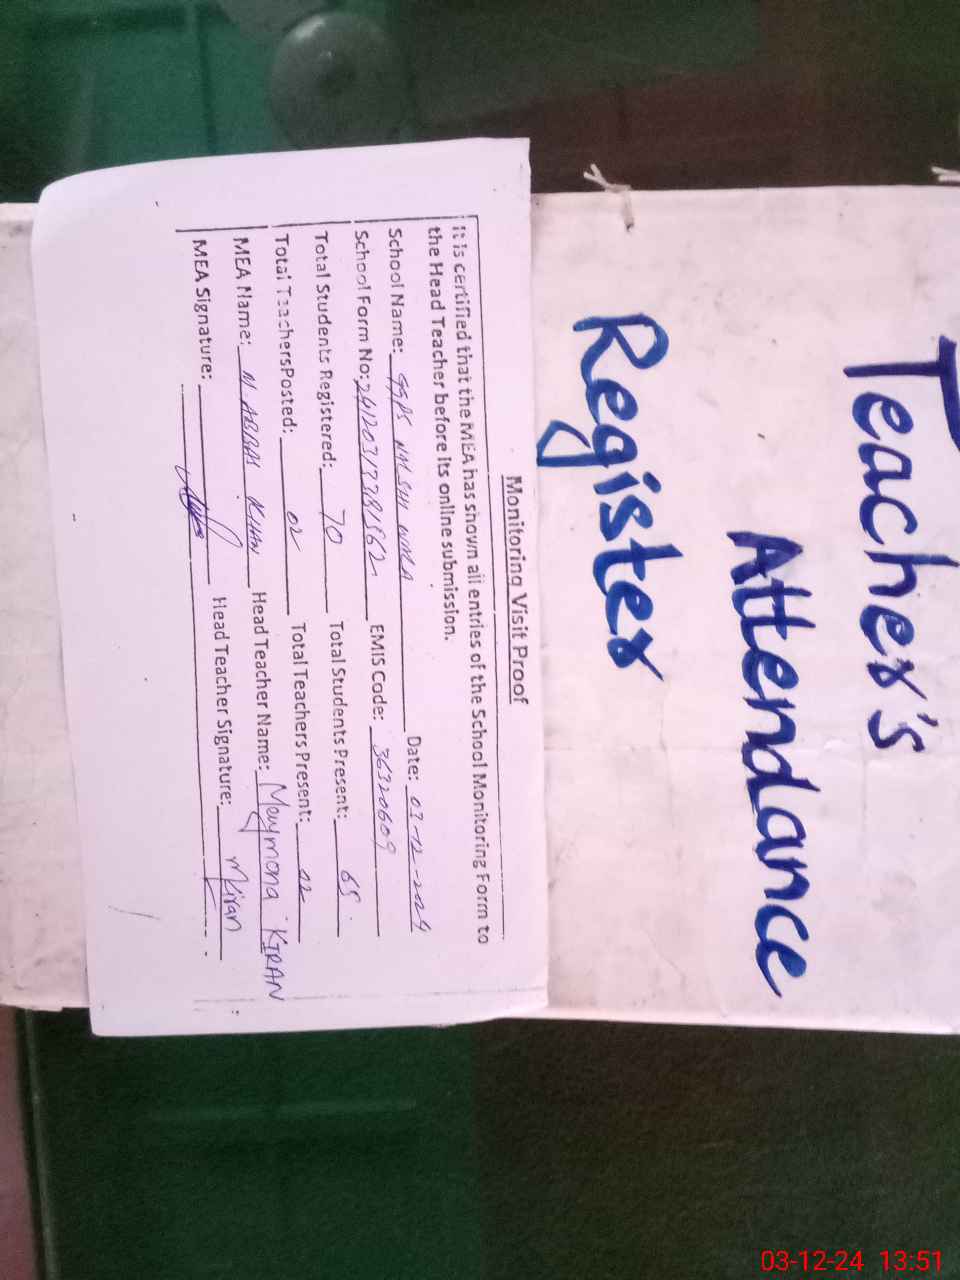 Teacher's
Attendance
Register
Monitoring Visit Proof
It is certified that the MEA has shown all entries of the School Monitoring Form to
the Head Teacher before its online submission.
School Name: GGPS Date: 03-12-2024
School Form No: EMIS Code: 36320609
Total Students Registered: 70 Total Students Present: 65
Total Teachers Posted: 02 Total Teachers Present: 02
MEA Name: M ABBAS KHAN Head Teacher Name: Maymona KIRAN
MEA Signature: Head Teacher Signature: mkiran
03-12-24 13:51